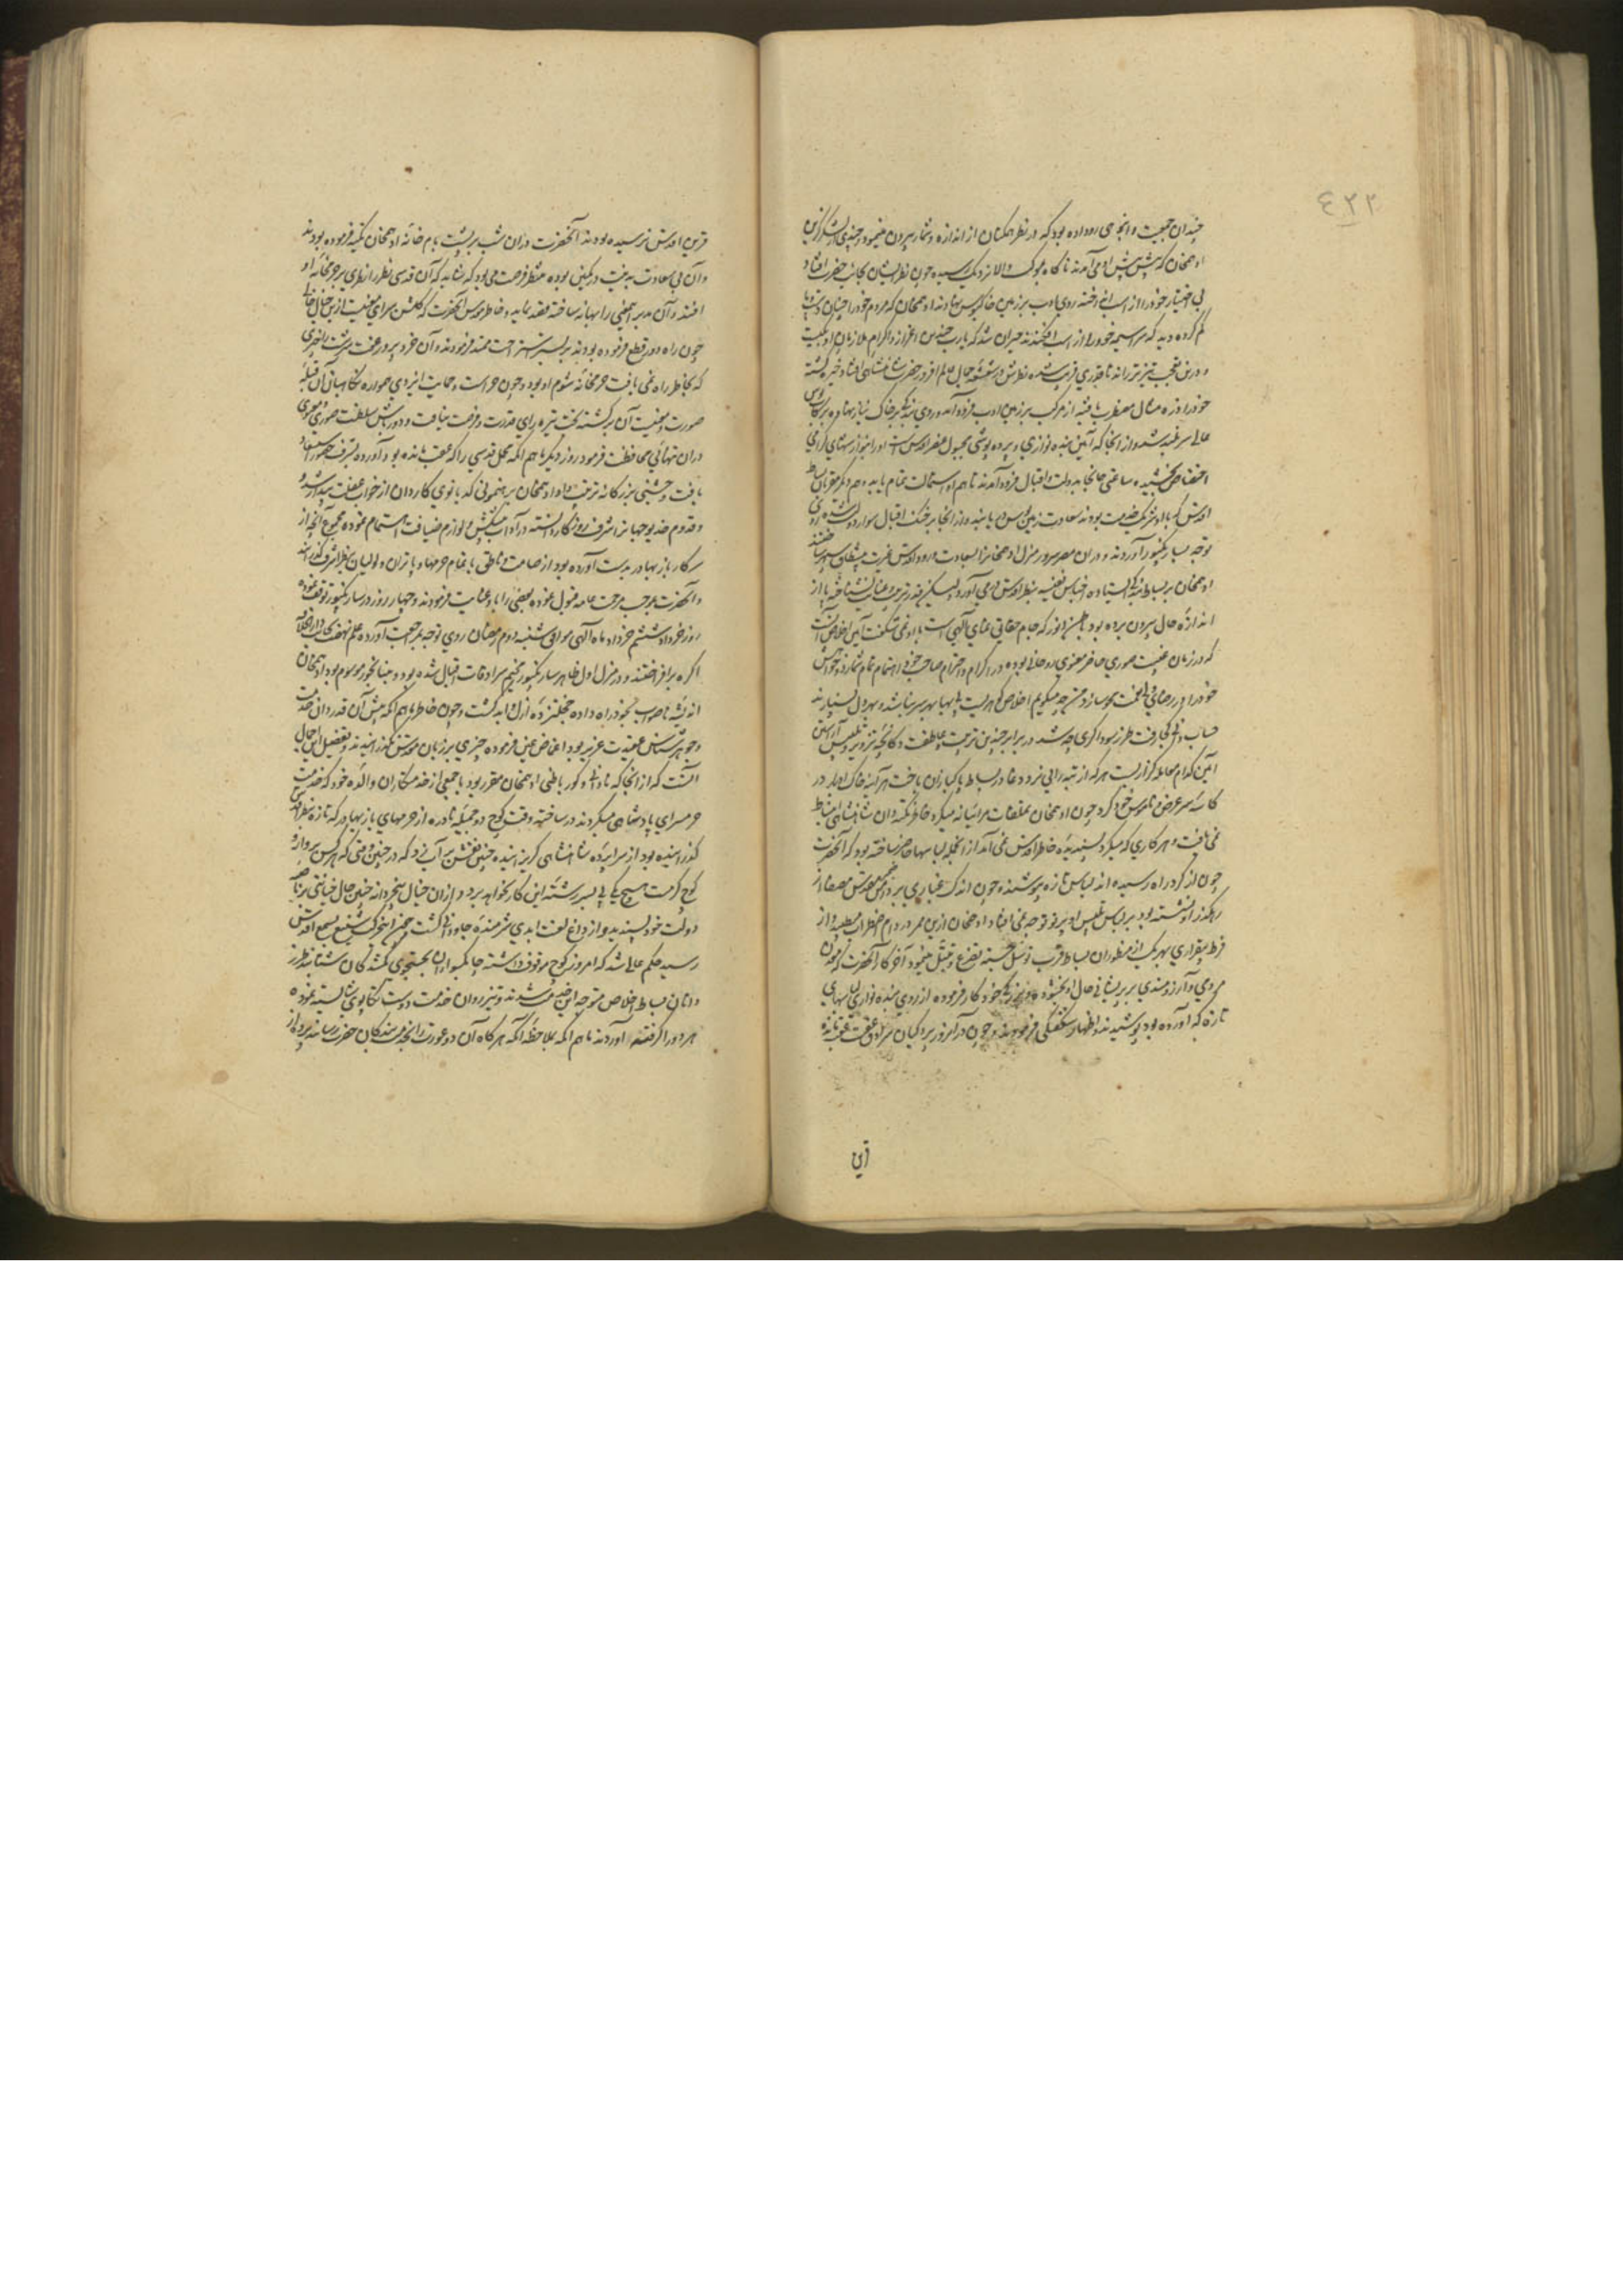 ٤٢٢
چندان جمعیت و انجمی رو داده بود که در نظر همکنان از اندازه و شمار بیرون مینمود و چندی از لشکر ازین
ادهمخان که پیش پیش او می آمدند ناگاه بموکب والا نزدیک رسیده چون نظر ایشان بجانب حضرت افتاد
بی اختیار خود را از اسب انداخته روی ادب بر زمین خاکبوس نهادند ادهمخان که مردم خود را چنان دست و پا
گم کرده دید که سراسیمه خود را از اسب افکندند حیران شد که یارب چندین اعزاز و اکرام ملازمان او بکیست
و درین تعجب تیزتر رانده تا قدری قریب شده نظرش در شعشعه جمال عالم افروز حضرت شاهنشاهی افتاد و خیره گشته
خود را ذره مثال مضطرب یافته از مرکب بر زمین ادب فرود آمد و روی بندگی بر خاک نیاز نهاده برکاب بوس
عالی سربلند شد و از آنجا که آئین بنده نوازی و پرده پوشی مجبول عنصر اقدس است او را بنوازشهای گرامی
اختصاص بخشیده ساعتی جا بجا بدولت و اقبال فرود آمدند تا هم او استمالت تمام یابد و هم دیگر مقربان بساط
اقدس که با او شریک خدمت بودند سعادت زمین بوس در یابند و از آنجا بر خنگ اقبال سوار دولت شده روی
توجه بسارنگپور آوردند و دران مصر سرور منزل ادهمخان را بسعادت ورود اقدس غیرت پیشطاق سپهر ساختند
ادهمخان بر بساط بندگی ایستاده اجناس نفیسه بنظر اقدس در می آورد و لیکن قدر تربیت و عنایت نشناخته پا از
اندازه حال بیرون برده بود باطن انور که جام حقایق نمای الهی است با او نمی شکفت آئین اخلاص آنست
که در زمان غیبت صوری حاضر معنوی و روحانی بوده در اکرام و احترام صاحب خود اهتمام تمام شمارد و خواهش
خود را در رضای ولی نعمت محو سازد من چه میگویم اخلاص گوهریست بی بها بهر سر نباشد و بهر دل نسپارند
حساب دانی کجا رفت طرز سوداگری چه شد در برابر چندین تربیت و عاطفت دکانچه تزویر و تلبیس آراستن
آئین کدام معامله گزاریست هر که از تبه رایی نرد دغا در بساط پاکبازان باخت هر آئینه خاک ادبار در
کاسه سر عرض و ناموس خود کرد چون ادهمخان تملقات مرائیانه میکرد خاطر نکته دان شاهنشاهی انبساط
نمی یافت و هر کاری که میکرد پسندیده خاطر اقدس نمی آمد از انجمله لباسها حاضر ساخته بود که آنحضرت
چون از گرد راه رسیده اند لباس تازه بپوشند و چون اندک غباری بر دامن مقدس مصفا از
رهگذر او نشسته بود بر لباس تلبیس او پرتو توجه نمی افتاد و ادهمخان ازین ممر در دام اضطراب می طپید و از
فرط بیقراری بهر یک از منظوران بساط قرب توسل جسته تضرع و تبتل مینمود آخر کار آنحضرت که معدن
مردمی و آزرم بودند بر پریشانی حال او بخشوده بزرگی خود کار فرموده از روی بنده نوازی لباسهای
تازه که آورده بود پوشیدند و اظهار شگفتگی فرمودند و چون در آنروز پردگیان سرادق عفت عقب مانده
قرین
قرین اقدس نرسیده بودند آنحضرت دران شب بر پشت بام خانه ادهمخان تکیه فرموده بودند
و آن بی سعادت بدنیت در کمین بوده منتظر فرصت می بود که شاید که آن قدسی نظر را نظری بر حرمخانه او
افتد و آن مدبر همین را بهانه ساخته قصد نماید و خاطر مقدس آنحضرت که گلشن سرای معنیست ازین خیال خالی
چون راه دور قطع فرموده بودند بر بستر استراحت ممتد فرمودند و آن خرد پرور عفت سرشت را چیزی
که بخاطر راه نمی یافت حرمخانه شوم او بود و چون حراست و حمایت ایزدی همواره نگاهبان آن قبله
صورت و معنیست آن برگشته بخت تیره رای قدرت و فرصت نیافت و دورباش سلطنت صوری و معنوی
دران تنهائی محافظت فرمود روز دیگر ماهم انگه محل قدسی را که عقب مانده بود آورده بشرف حضور استسعاد
یافت و جشنی بزرگانه ترتیب داد و ادهمخان برهنمونی کدبانوی کاردان از خواب غفلت بیدار شد و
و قدوم خدیو جهان را شرف روزگار دانسته در آداب پیشکش و لوازم ضیافت اهتمام نموده مجموع آنچه از
سرکار باز بهادر بدست آورده بود از صامت و ناطق با تمام حرمها و پاتران و لولیان بنظر اشرف گذرانید
و آنحضرت بموجب مرحمت عامه قبول نموده بعضی را باو عنایت فرمودند و چهار روز در سارنگپور توقف نموده
روز خرداد ششم خرداد ماه الهی موافق شنبه دوم رمضان روی توجه بمراجعت آورده علم نهضت بجانب دار الخلافه
آگره برافراختند و در منزل اول ظاهر سارنگپور مخیم سرادقات اقبال شده بود و چنانچه مرسوم بود ادهمخان
اندیشه ناصواب بخود راه داده خجلت زده ازل و ابد گشت و چون خاطر ماهم انگه پیش آن قدردان خدمت
و جوهرشناس عقیدت عزیز بود اغماض عین فرموده چیزی بر زبان مقدس نگذرانیدند و تفصیل این اجمال
آنست که از آنجا که نادانی و کور باطنی ادهمخان مقرر بود با جمعی از خدمتکاران والده خود که خدمت
حرمسرای پادشاهی میکردند در ساخته وقت کوچ دو جمیله نادره از حرمهای باز بهادر که تازه بنظر اقدس
گذرانیده بود از سراپرده شاهنشاهی گریزانیده چنین نقش بر آب زد که در چنین وقتی که هر کس پرواز و
کوچ گرمست هیچ یکی پی بسر رشته این کار نخواهد برد و ازان خیال نابخردانه چنین حال خیانتی بر ناصیه
دولت خود پسندید و از داغ لعنت ابدی شرمنده جاودانی گشت چون این حرکت شنیع بسمع اقدس
رسید حکم عالی شد که امروز کوچ موقوف داشته چابکسواران بجستجوی گمشدگان شتابند طرز
دانان بساط اخلاص متوجه این خدمت شدند و تیزروان خدمت دوست تکاپوی شایسته نموده
هر دو را گرفته آوردند ماهم انگه بملاحظه آنکه هرگاه آن دو عورت را بخدمت بندگان حضرت رسانند پرده از